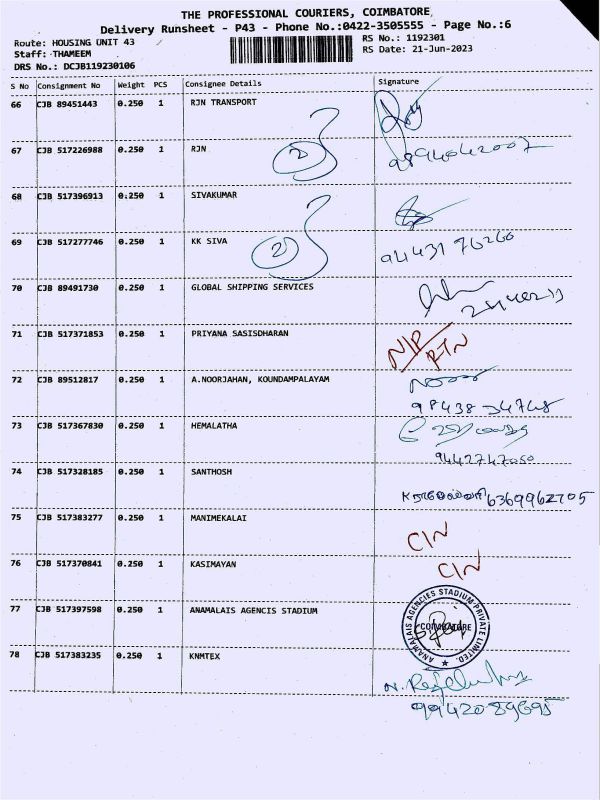 THE PROFESSIONAL COURIERS, COIMBATORE
Delivery Runsheet - P43 - Phone No.:0422-3505555 - Page No.:6
Route: HOUSING UNIT 43
RS No.: 1192301
Staff: THAMEEM
RS Date: 21-Jun-2023
DRS No.: DCJB119230106
S No Consignment No Weight PCS Consignee Details Signature
66 CJB 89451443 0.250 1 RJN TRANSPORT
67 CJB 517226988 0.250 1 RJN 9894042007
2
68 CJB 517396913 0.250 1 SIVAKUMAR
69 CJB 517277746 0.250 1 KK SIVA 94431 76260
2
70 CJB 89491730 0.250 1 GLOBAL SHIPPING SERVICES
71 CJB 517371853 0.250 1 PRIYANA SASISDHARAN N/P
RTN
72 CJB 89512817 0.250 1 A.NOORJAHAN, KOUNDAMPALAYAM
98438 34748
73 CJB 517367830 0.250 1 HEMALATHA
9442747050
74 CJB 517328185 0.250 1 SANTHOSH
6369962705
75 CJB 517383277 0.250 1 MANIMEKALAI CIN
76 CJB 517370841 0.250 1 KASIMAYAN CIN
77 CJB 517397598 0.250 1 ANAMALAIS AGENCIS STADIUM
ANAMALAIS AGENCIES STADIUM PRIVATE LIMITED.
COIMBATORE
78 CJB 517383235 0.250 1 KNMTEX
99420 89695